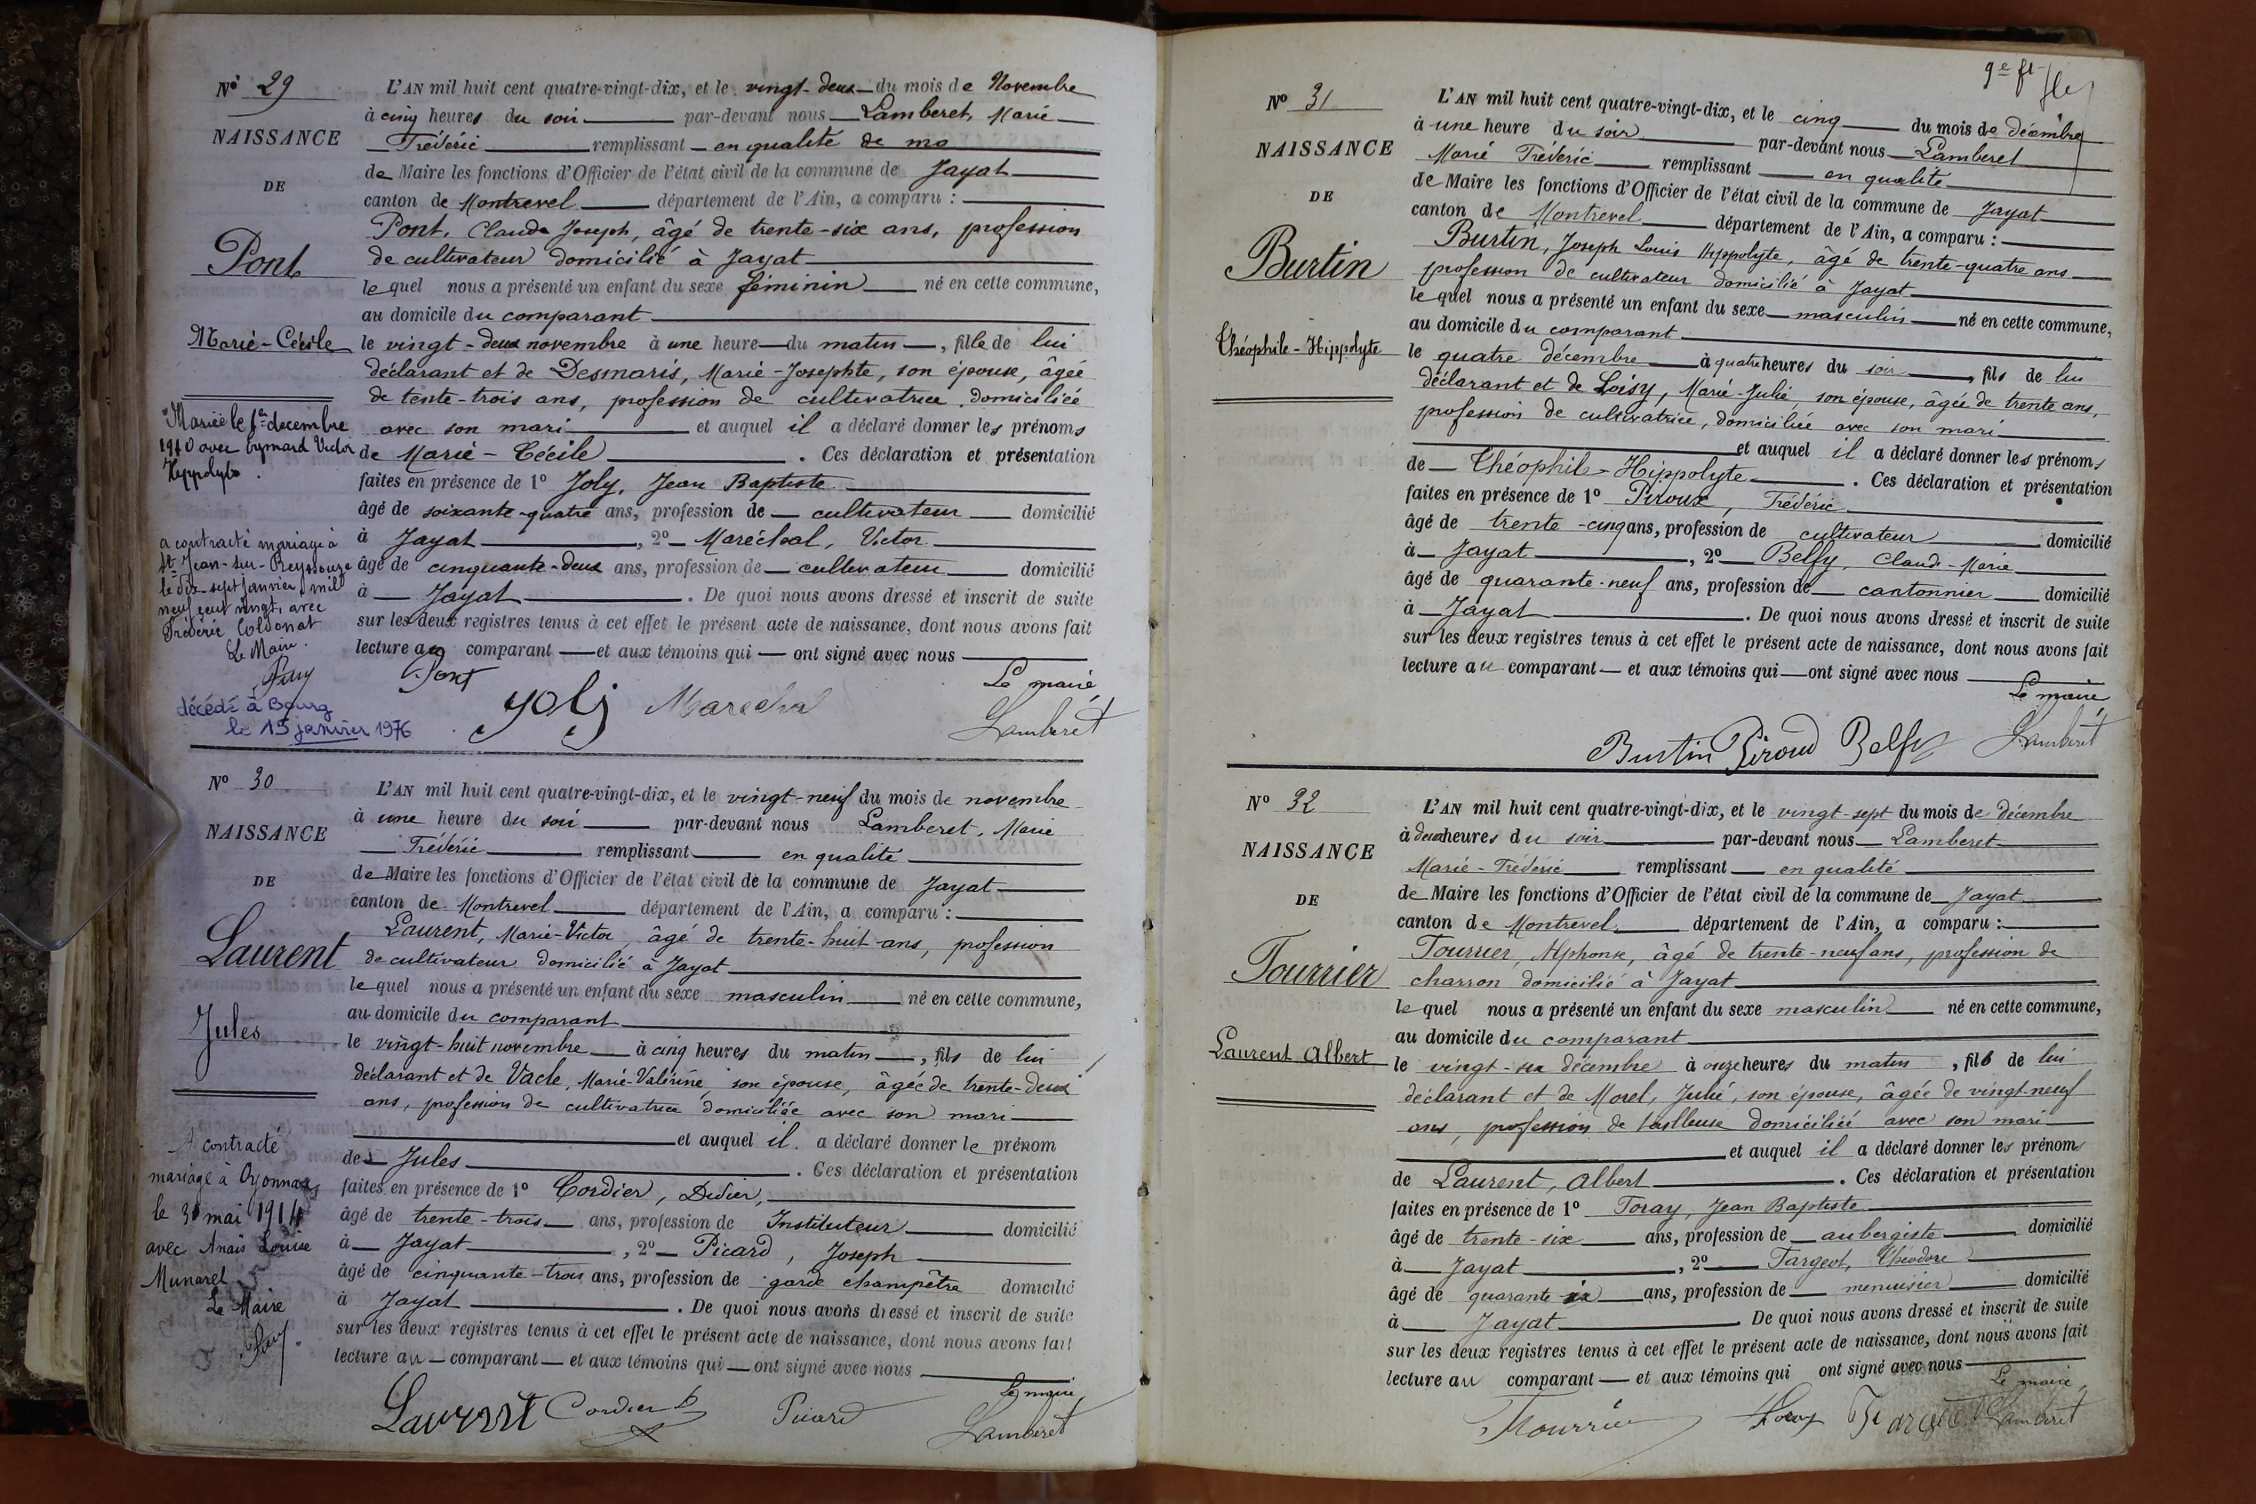 Nº 29
NAISSANCE
DE
Pont
Marie-Cécile
Mariée le 1er decembre
1910 avec Eymard Victor
Hippolyte.
a contracté mariage à
St Jean-sur-Reyssouze
le dix-sept janvier mil
neuf cent vingt, avec
Frédéric Coldonat
Le Maire.
décédé à Bourg
le 15 janvier 1976
L'AN mil huit cent quatre-vingt-dix, et le vingt-deux du mois de Novembre
à cinq heures du soir par-devant nous Lamberet, Marie
Fréderic remplissant en qualité de ma
de Maire les fonctions d'Officier de l'état civil de la commune de Jayat
canton de Montrevel département de l'Ain, a comparu :
Pont, Claude Joseph, âgé de trente-six ans, profession
de cultivateur domicilié à Jayat
lequel nous a présenté un enfant du sexe féminin né en cette commune,
au domicile du comparant
le vingt-deux novembre à une heure du matin, fille de lui
déclarant et de Desmaris, Marie-Josephte, son épouse, âgée
de tente-trois ans, profession de cultivatrice domiciliée
avec son mari et auquel il a déclaré donner les prénoms
de Marie-Cécile. Ces déclaration et présentation
faites en présence de 1º Joly, Jean Baptiste
âgé de soixante-quatre ans, profession de cultivateur domicilié
à Jayat, 2º Maréchal, Victor
âgé de cinquante-deux ans, profession de cultivateur domicilié
à Jayat. De quoi nous avons dressé et inscrit de suite
sur les deux registres tenus à cet effet le présent acte de naissance, dont nous avons fait
lecture au comparant et aux témoins qui ont signé avec nous
Le maire
Pont Joly Marechal Lamberet
Nº 30
NAISSANCE
DE
Laurent
Jules
A contracté
mariage à Oyonnax
le 30 mai 1914
avec Anaïs Louise
Munarel
Le Maire
L'AN mil huit cent quatre-vingt-dix, et le vingt-neuf du mois de novembre
à une heure du soir par-devant nous Lamberet, Marie
Fréderic remplissant en qualité
de Maire les fonctions d'Officier de l'état civil de la commune de Jayat
canton de Montrevel département de l'Ain, a comparu :
Laurent, Marie-Victor, âgé de trente-huit ans, profession
de cultivateur domicilié à Jayat
lequel nous a présenté un enfant du sexe masculin né en cette commune,
au domicile du comparant
le vingt-huit novembre à cinq heures du matin, fils de lui
déclarant et de Vacle, Marie-Valérine, son épouse, âgée de trente-deux
ans, profession de cultivatrice domiciliée avec son mari
et auquel il a déclaré donner le prénom
de Jules. Ces déclaration et présentation
faites en présence de 1º Cordier, Didier,
âgé de trente-trois ans, profession de Instituteur domicilié
à Jayat, 2º Picard, Joseph
âgé de cinquante-trois ans, profession de garde champêtre domicilié
à Jayat. De quoi nous avons dressé et inscrit de suite
sur les deux registres tenus à cet effet le présent acte de naissance, dont nous avons fait
lecture au comparant et aux témoins qui ont signé avec nous
Le maire
Laurent Cordier D Picard Lamberet
9e ft
Nº 31
NAISSANCE
DE
Burtin
Théophile-Hippolyte
L'AN mil huit cent quatre-vingt-dix, et le cinq du mois de décembre
à une heure du soir par-devant nous Lamberet
Marie Fréderic remplissant en qualité
de Maire les fonctions d'Officier de l'état civil de la commune de Jayat
canton de Montrevel département de l'Ain, a comparu :
Burtin, Joseph Louis Hippolyte, âgé de trente-quatre ans
profession de cultivateur domicilié à Jayat
lequel nous a présenté un enfant du sexe masculin né en cette commune,
au domicile du comparant
le quatre décembre à quatre heures du soir, fils de lui
déclarant et de Loisy, Marie-Julie, son épouse, âgée de trente ans,
profession de cultivatrice, domiciliée avec son mari
et auquel il a déclaré donner les prénoms
de Théophile-Hippolyte. Ces déclaration et présentation
faites en présence de 1º Piroux, Fréderic
âgé de trente-cinq ans, profession de cultivateur domicilié
à Jayat, 2º Belfy, Claude-Marie
âgé de quarante-neuf ans, profession de cantonnier domicilié
à Jayat. De quoi nous avons dressé et inscrit de suite
sur les deux registres tenus à cet effet le présent acte de naissance, dont nous avons fait
lecture au comparant et aux témoins qui ont signé avec nous
Le maire
Burtin Piroud Belfy Lamberet
Nº 32
NAISSANCE
DE
Tourrier
Laurent Albert
L'AN mil huit cent quatre-vingt-dix, et le vingt-sept du mois de décembre
à deux heures du soir par-devant nous Lamberet
Marie-Fréderic remplissant en qualité
de Maire les fonctions d'Officier de l'état civil de la commune de Jayat
canton de Montrevel département de l'Ain, a comparu :
Tourrier, Alphonse, âgé de trente-neuf ans, profession de
charron domicilié à Jayat
lequel nous a présenté un enfant du sexe masculin né en cette commune,
au domicile du comparant
le vingt-six décembre à onze heures du matin, fils de lui
déclarant et de Morel, Julie, son épouse, âgée de vingt-neuf
ans, profession de tailleuse domiciliée avec son mari
et auquel il a déclaré donner les prénoms
de Laurent, Albert. Ces déclaration et présentation
faites en présence de 1º Foray, Jean Baptiste
âgé de trente-six ans, profession de aubergiste domicilié
à Jayat, 2º Fargeot, Théodore
âgé de quarante-six ans, profession de menuisier domicilié
à Jayat. De quoi nous avons dressé et inscrit de suite
sur les deux registres tenus à cet effet le présent acte de naissance, dont nous avons fait
lecture au comparant et aux témoins qui ont signé avec nous
Le maire
Tourrier Foray Fargeot Lamberet